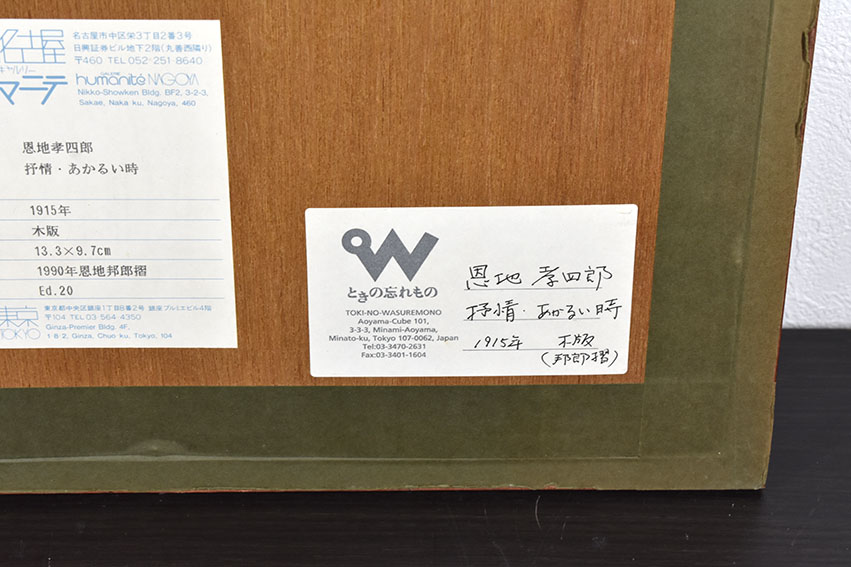 名古屋
ギャルリー
マニテ
名古屋市中区栄3丁目2番3号
日興証券ビル地下2階(丸善西隣り)
〒460 TEL 052-251-8640
GALERIE
humanité NAGOYA
Nikko-Showken Bldg. BF2, 3-2-3,
Sakae, Naka ku, Nagoya, 460
恩地孝四郎
抒情・あかるい時
1915年
木版
13.3×9.7cm
1990年恩地邦郎摺
Ed.20
東京
TOKYO
東京都中央区銀座1丁目8番2号 銀座プルミエビル4階
〒104 TEL 03 564 4350
Ginza-Premier Bldg. 4F,
1 8 2, Ginza, Chuo ku, Tokyo, 104
ときの忘れもの
TOKI-NO-WASUREMONO
Aoyama-Cube 101,
3-3-3, Minami-Aoyama,
Minato-ku, Tokyo 107-0062, Japan
Tel:03-3470-2631
Fax:03-3401-1604
恩地 孝四郎
抒情・あかるい時
1915年 木版
(邦郎摺)